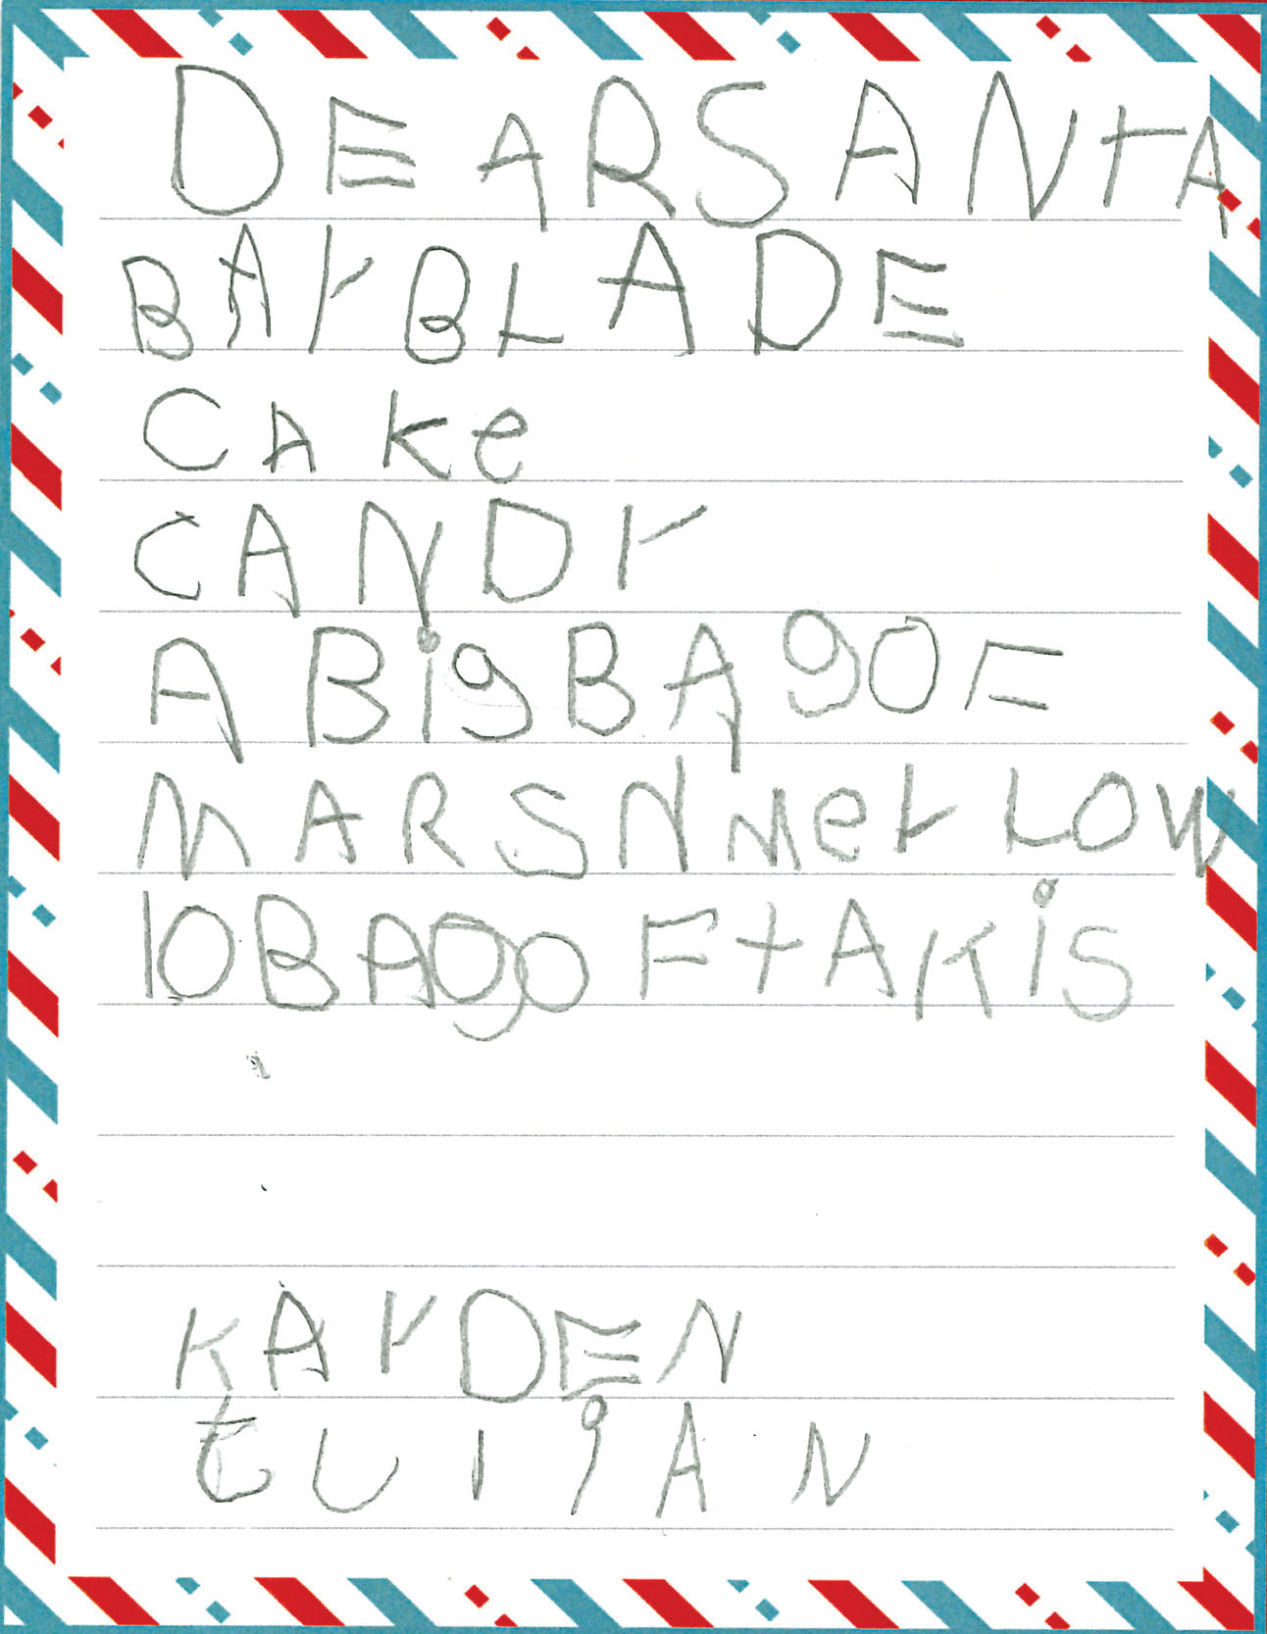 DEAR SANTA
BAYBLADE
CAke
CANDY
A Big BAg OF
MARSHMeLLOW
10 BAg OF tAKiS
KAYDEN
ELIjAN